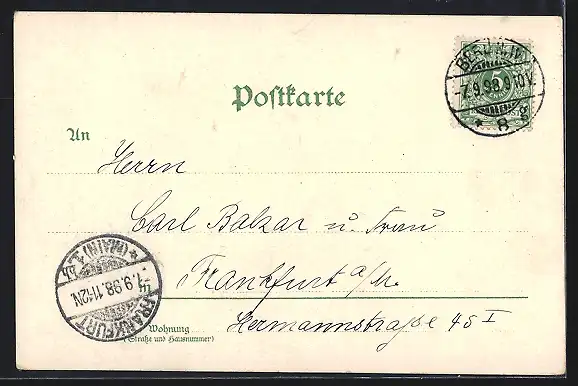 Postkarte
BERLIN, W.
-7.9.98.9-10V.
* 8 g
5
An
Herrn
Carl Balzar u. Frau
Frankfurt a/M.
Hermannstraße 45 I
Wohnung
(Straße und Hausnummer)
FRANKFURT
-7.9.98.11-12N.
* (MAIN) 1.